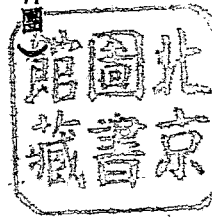 北京
圖書
館藏
圖）